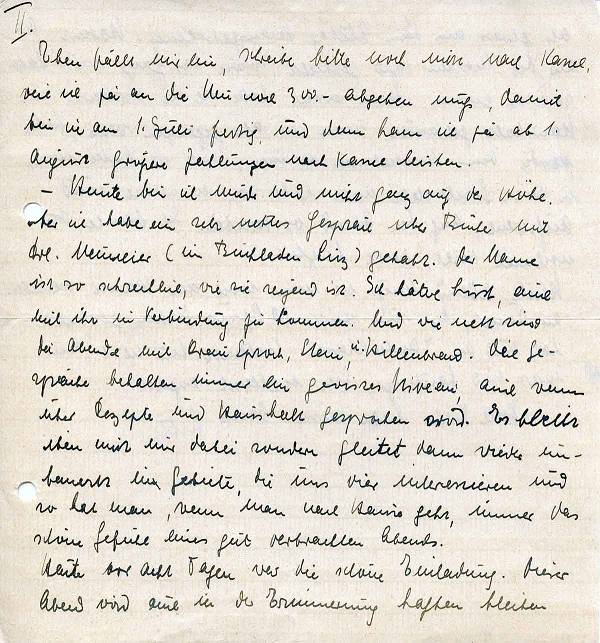 II.
Eben fällt mir ein, schreibe bitte noch nicht nach Kassel,
weil ich ja an die Uni noch 300.- abgeben muß, damit
bin ich am 1. Juli fertig, und dann kann ich ja ab 1.
August größere Zahlungen nach Kassel leisten.
– Heute bin ich müde und nicht ganz auf der Höhe.
Aber ich habe ein sehr nettes Gespräch über Bücher mit
Frl. Neumeier (im Buchladen Linz) gehabt. Der Name
ist so schrecklich, wie sie reizend ist. Ich hätte Lust, auch
mit ihr in Verbindung zu kommen. Und wie nett sind
die Abende mit Sproch, Stein, u. Hillenbrand. Die Ge-
spräche behalten immer ein gewisses Niveau, auch wenn
über Rezepte und Haushalt gesprochen wird. Es bleibt
eben nicht nur dabei sondern gleitet dann wieder un-
bemerkt in Gebiete, die uns vier interessieren und
so hat man, wenn man nach Hause geht, immer das
schöne Gefühl eines gut verbrachten Abends.
Heute vor acht Tagen war die schöne Einladung. Dieser
Abend wird auch in der Erinnerung haften bleiben